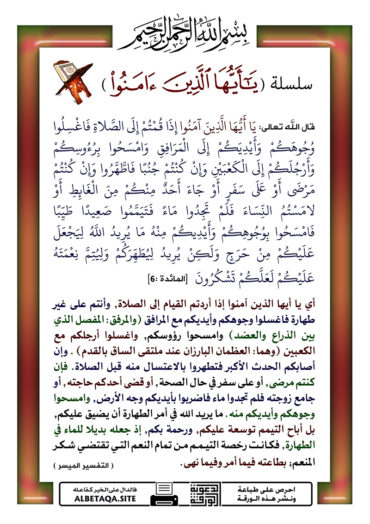 بسم الله الرحمن الرحيم
سلسلة ( يَٰٓأَيُّهَا ٱلَّذِينَ ءَامَنُوا۟ )
قال الله تعالى: يَا أَيُّهَا الَّذِينَ آمَنُوا إِذَا قُمْتُمْ إِلَى الصَّلاةِ فَاغْسِلُوا
وُجُوهَكُمْ وَأَيْدِيَكُمْ إِلَى الْمَرَافِقِ وَامْسَحُوا بِرُءُوسِكُمْ
وَأَرْجُلَكُمْ إِلَى الْكَعْبَيْنِ وَإِنْ كُنْتُمْ جُنُبًا فَاطَّهَّرُوا وَإِنْ كُنْتُمْ
مَرْضَى أَوْ عَلَى سَفَرٍ أَوْ جَاءَ أَحَدٌ مِنْكُمْ مِنَ الْغَائِطِ أَوْ
لامَسْتُمُ النِّسَاءَ فَلَمْ تَجِدُوا مَاءً فَتَيَمَّمُوا صَعِيدًا طَيِّبًا
فَامْسَحُوا بِوُجُوهِكُمْ وَأَيْدِيكُمْ مِنْهُ مَا يُرِيدُ اللَّهُ لِيَجْعَلَ
عَلَيْكُمْ مِنْ حَرَجٍ وَلَكِنْ يُرِيدُ لِيُطَهِّرَكُمْ وَلِيُتِمَّ نِعْمَتَهُ
عَلَيْكُمْ لَعَلَّكُمْ تَشْكُرُونَ [المائدة :6]
أي يا أيها الذين آمنوا إذا أردتم القيام إلى الصلاة, وأنتم على غير
طهارة فاغسلوا وجوهكم وأيديكم مع المرافق (والمرفق: المفصل الذي
بين الذراع والعضد) وامسحوا رؤوسكم, واغسلوا أرجلكم مع
الكعبين (وهما: العظمان البارزان عند ملتقى الساق بالقدم) . وإن
أصابكم الحدث الأكبر فتطهروا بالاغتسال منه قبل الصلاة. فإن
كنتم مرضى, أو على سفر في حال الصحة, أو قضى أحدكم حاجته, أو
جامع زوجته فلم تجدوا ماء فاضربوا بأيديكم وجه الأرض, وامسحوا
وجوهكم وأيديكم منه. ما يريد الله في أمر الطهارة أن يضيق عليكم,
بل أباح التيمم توسعة عليكم, ورحمة بكم, إذ جعله بديلا للماء في
الطهارة, فكانت رخصة التيمم من تمام النعم التي تقتضي شكر
المنعم; بطاعته فيما أمر وفيما نهى. ( التفسير الميسر )
احرص على طباعة
ونشر هذه الورقة
الورقة
الدعوية
فالدال على الخير كفاعله
ALBETAQA.SITE